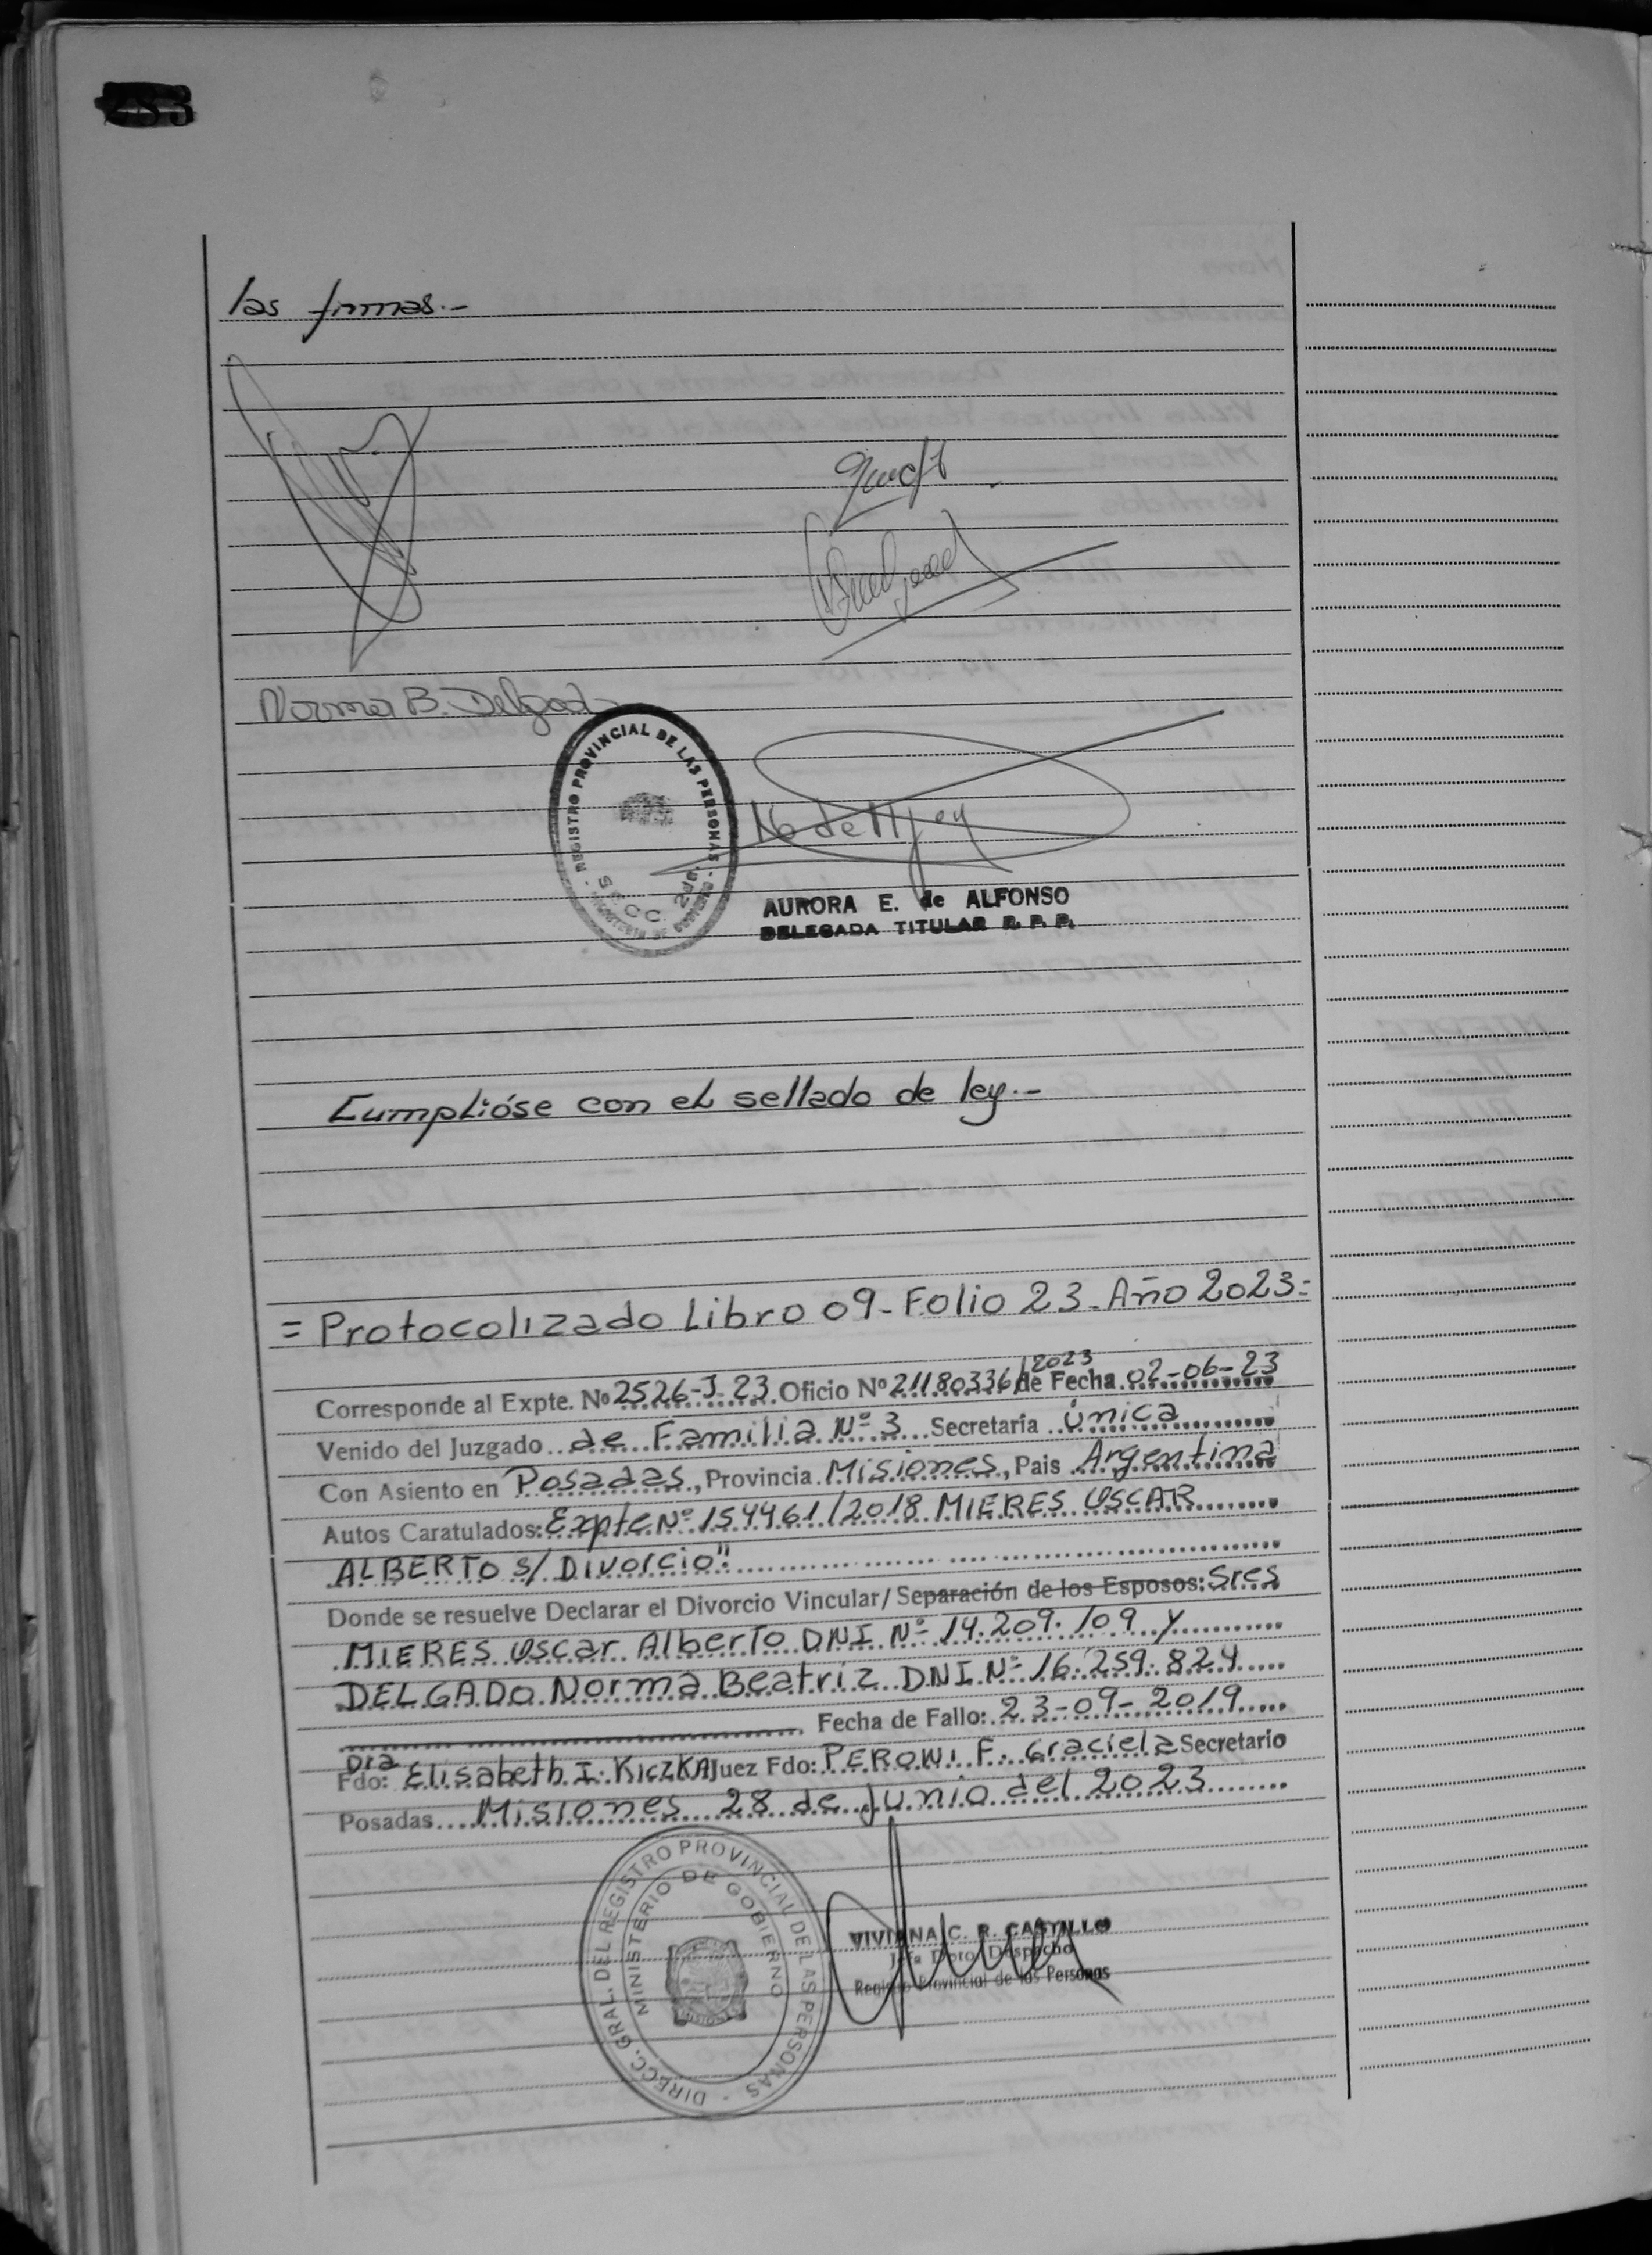 las firmas.-
Norma B. Delgado
REGISTRO PROVINCIAL DE LAS PERSONAS
SECC. 2da.
AURORA E. de ALFONSO
DELEGADA TITULAR R. P. P.
Cumplióse con el sellado de ley.-
= Protocolizado Libro 09 - Folio 23 - Año 2023 =
Corresponde al Expte. Nº 2526-J-23 Oficio Nº 21180336/2023 de Fecha 02-06-23
Venido del Juzgado de Familia Nº 3 Secretaría única
Con Asiento en Posadas, Provincia Misiones, Pais Argentina
Autos Caratulados: Expte Nº 154461/2018 MIERES OSCAR
ALBERTO s/ Divorcio".
Donde se resuelve Declarar el Divorcio Vincular/Separación de los Esposos: Sres
MIERES Oscar Alberto DNI Nº 14.209.109 y
DELGADO Norma Beatriz DNI Nº 16.259.824
Fecha de Fallo: 23-09-2019
Fdo: Dra Elisabeth I. KiczKA Juez Fdo: PERONI F. Graciela Secretario
Posadas Misiones 28 de Junio del 2023
DIRECC. GRAL. DEL REGISTRO PROVINCIAL DE LAS PERSONAS
MINISTERIO DE GOBIERNO
VIVIANA C. R. CASTILLO
Jefa Dpto. Despacho
Registro Provincial de las Personas